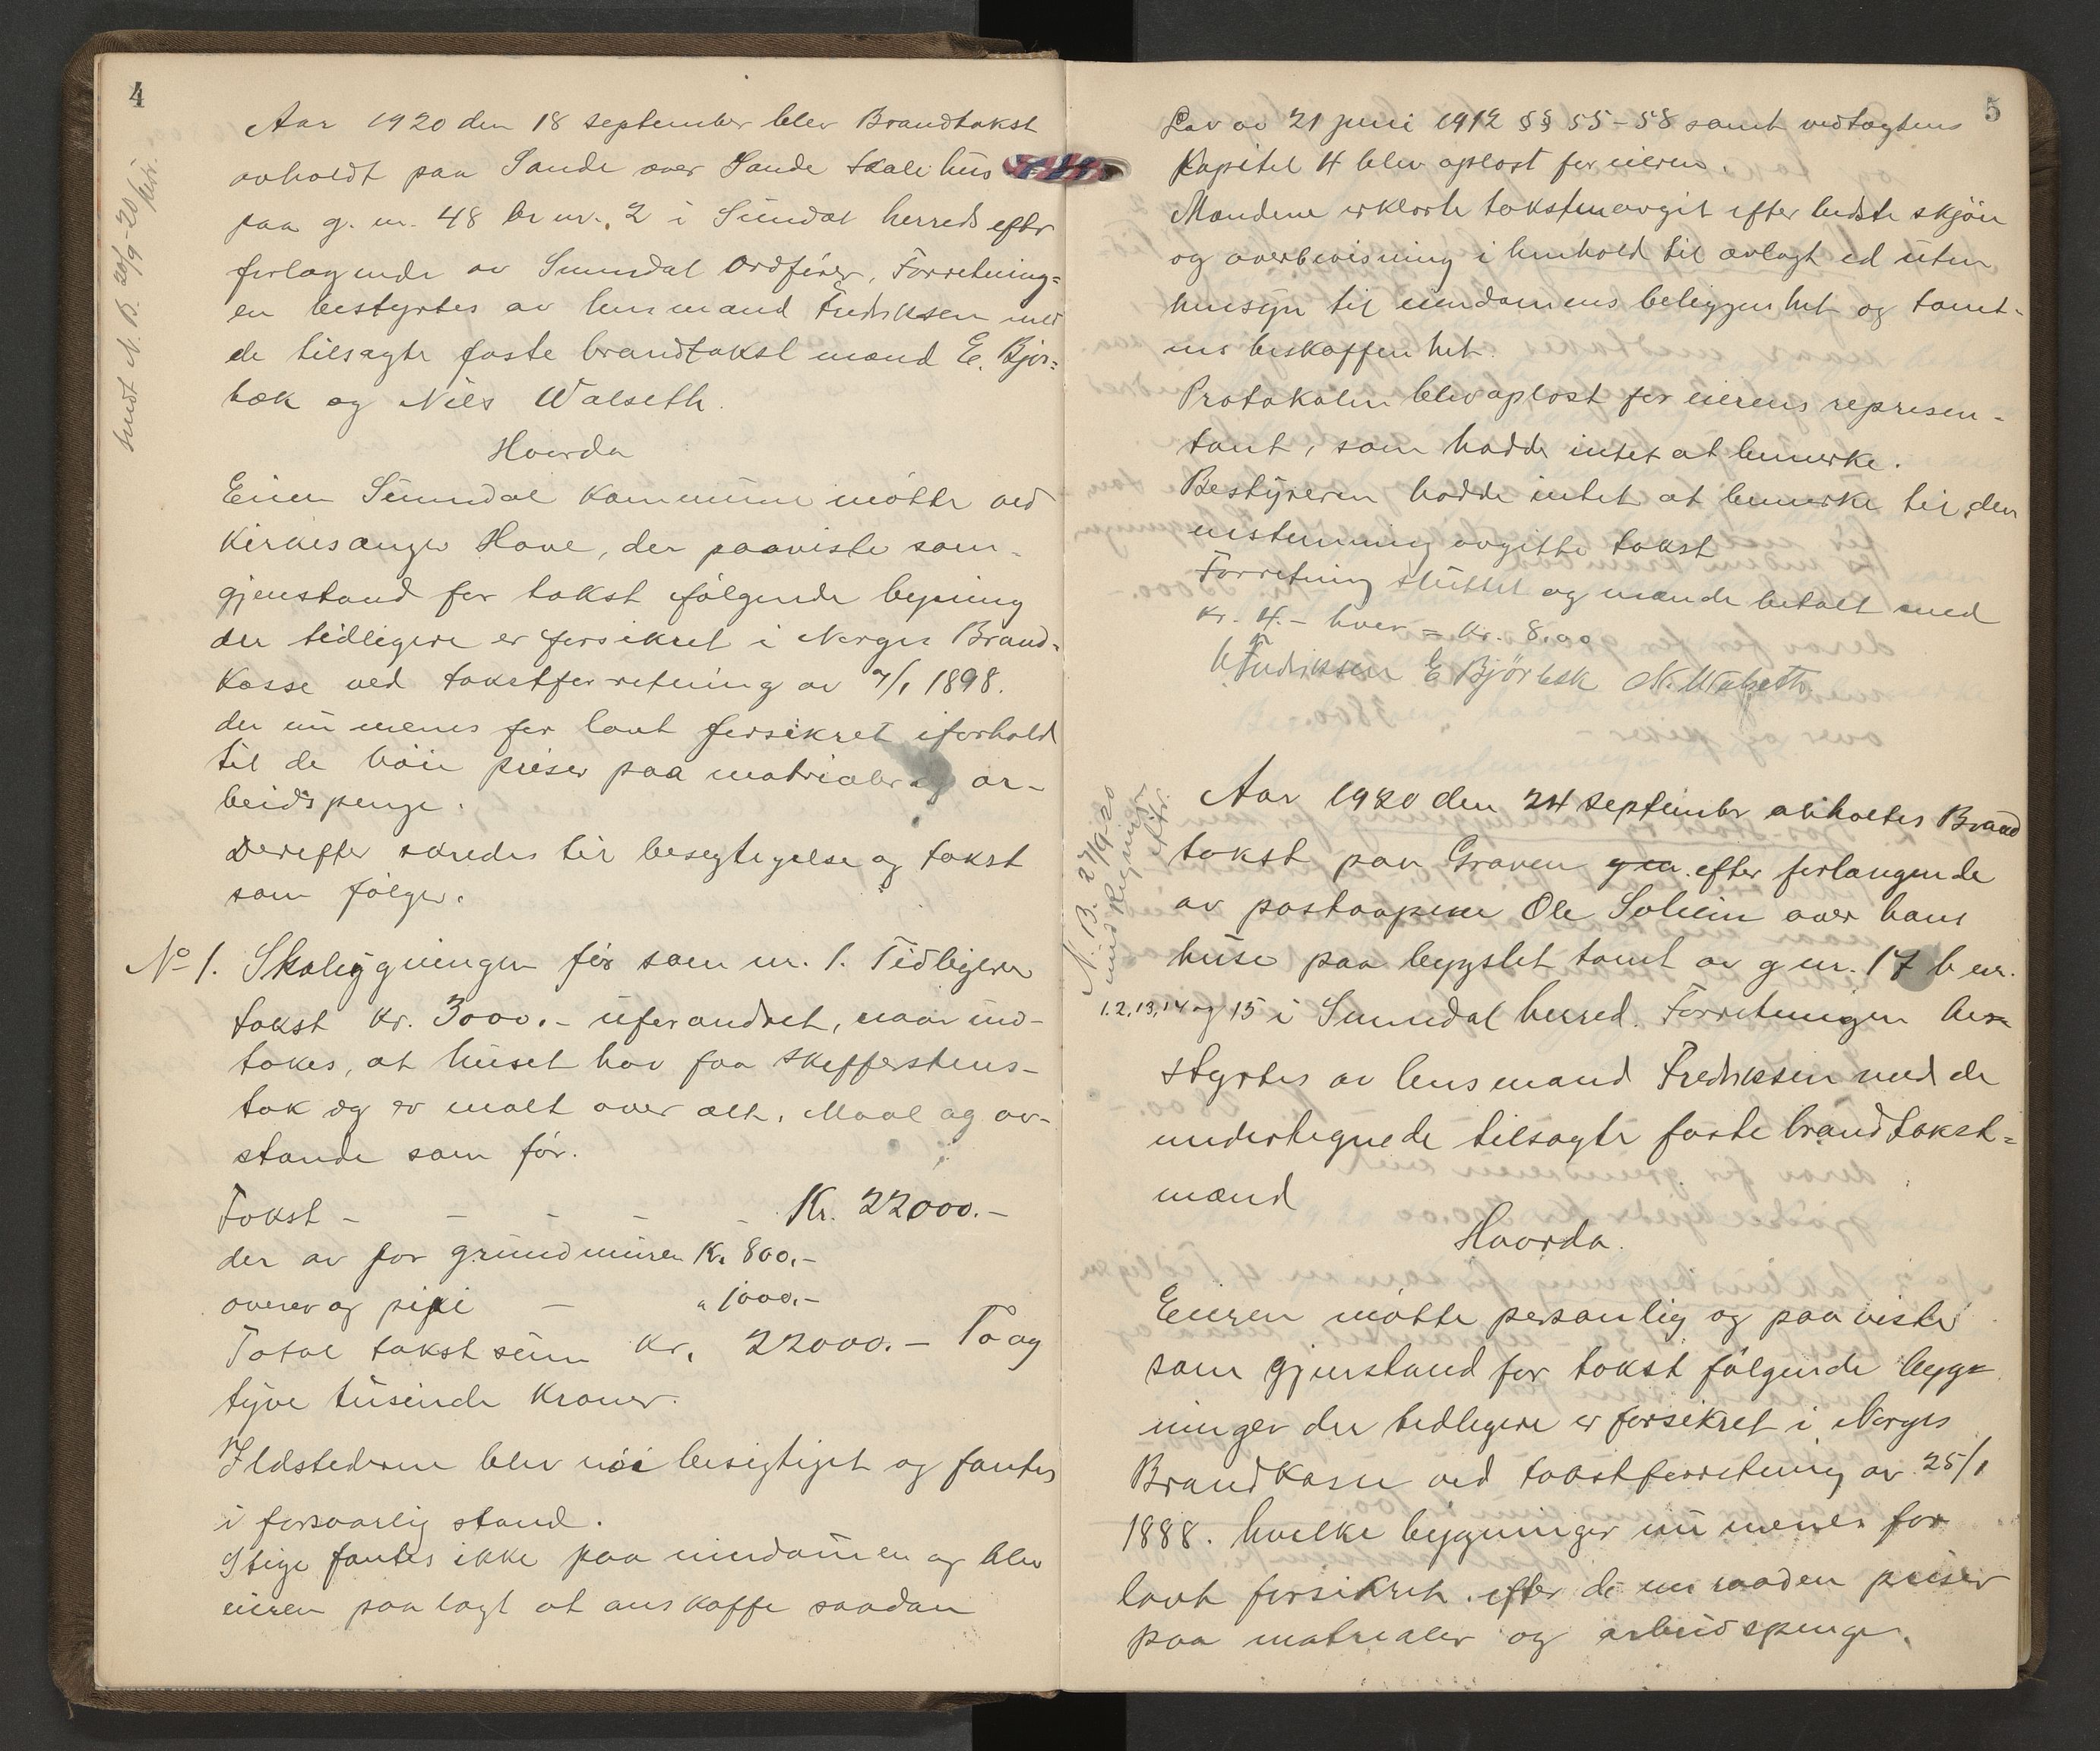 4
sendt N. B. 20/9-20
Aar 1920 den 18 september blev Brandtakst
avholdt paa Sande over Sande skolehus
paa g. nr. 48 br nr. 2 i Sundal herred efter
forlagende av Sunndal Ordfører. Forretning=
en bestyrtes av lensmand Fredriksen med
de tilsagte faste brandtakst mænd E. Bjør=
bæk og Nils Walseth.
Hvorda
Eier Sunndal Kommune møtte ved
Kirkesanger Hove, der paaviste som
gjenstand for takst følgende bygning
der tidligere er forsikret i Norges Brand-
kasse ved takstforretning av 7/1 1898.
der nu menes for lavt forsikret iforhold
til de høie priser paa matrialer og ar-
beidspenge.
Derefter skredes til besegtigelse og takst
som følger.
No 1. Skolebygningen før som nr. 1. Tidligere
takst kr. 3000.- uforandret, naar ind-
takes, at huset har faa skifferstens-
tak og er malt over alt. Maal og av-
stande som før.
Takst - - - - - Kr. 22000.-
der av for grundmuren Kr 800.-
overn og pipe - " 1000.-
Total takst sum kr. 22000.- To og
tyve tusinde kroner.
Ildstederne blev nøie besigtiget og fantes
i forsvarlig stand.
Stige fantes ikke paa eiendommen og blev
eieren paalagt at anskaffe saadan
5
Lov av 21 juni 1912 §§ 55-58 samt vedtagtens
Kapitel 4 blev oplæst for eieren.
Mændene erklærte taksten avgit efter bedste skjön
og overbevisning i henhold til avlagt ed uten
hensyn til eiendomens beliggenhet og tomt-
ens beskaffenhet.
Protokolen blev oplæst for eierens represen-
tant, som hadde intet at bemerke.
Bestyreren hadde intet at bemerke til den
enstemmig avgitte takst
Forretning sluttet og mænde betalt med
kr. 4.- hver = kr. 8.00
Fredriksen E Bjørbæk N. Walseth
N. B. 27/9-20
med Regning
Aar 1920 den 24 septembr avholtes Brand
takst paa Graven gnr. efter forlangende
av postaapner Ole Solheim over hans
huse paa bygslet tomt av g nr. 17 b nr.
1.2,13,14 og 15 i Sunndal herred. Forretningen be=
styrtes av lensmand Fredriksen med de
undertegnede tilsagte faste brandtakst=
mænd
Hvorda.
Eieren møtte personlig og paaviste
som gjenstand for takst følgende byg=
ninger der tidligere er forsikret i Norges
Brandkasse ved takstforretning av 25/1
1888. hvilke bygninger nu menes for
lavt forsikret. efter de nu raaden priser
paa matrialer og arbeidspenge.